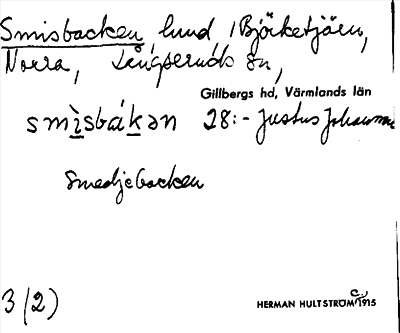 Smisbacken lund i Björketjärn,
Norra, Långseruds sn,
Gillbergs hd, Värmlands län
smìsbákən 28:- Justus Johansson
Smedjebacken
3 (2)
HERMAN HULTSTRÖM C. 1915